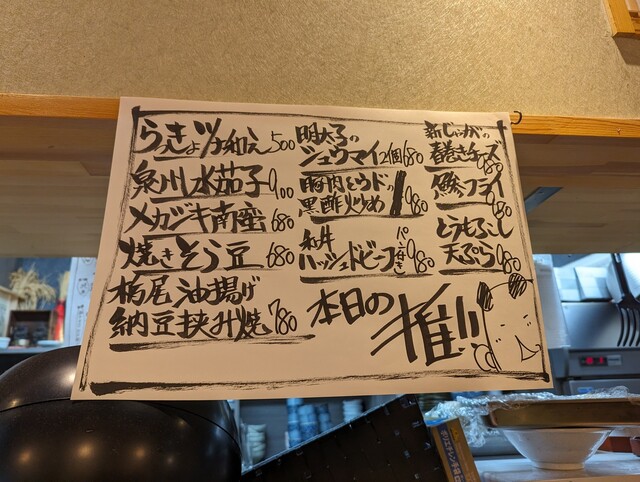 らっきょツナ和え 500
泉州水茄子 900
メカジキ南蛮 680
焼きそら豆 680
栃尾油揚げ
納豆挟み焼 780
明太子の
シュウマイ2個 680
豚肉とウドの
黒酢炒め 980
和牛
ハッシュドビーフ パン付き 980
新じゃがの
春巻きチーズ 680
鯵フライ 980
とうもろこし
天ぷら 980
本日の推!!